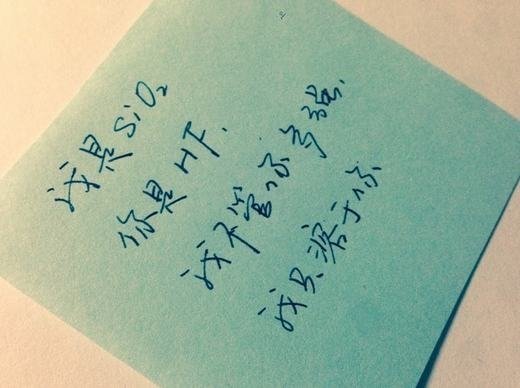 我是SiO₂
你是HF.
我不管你多强.
我只溶于你